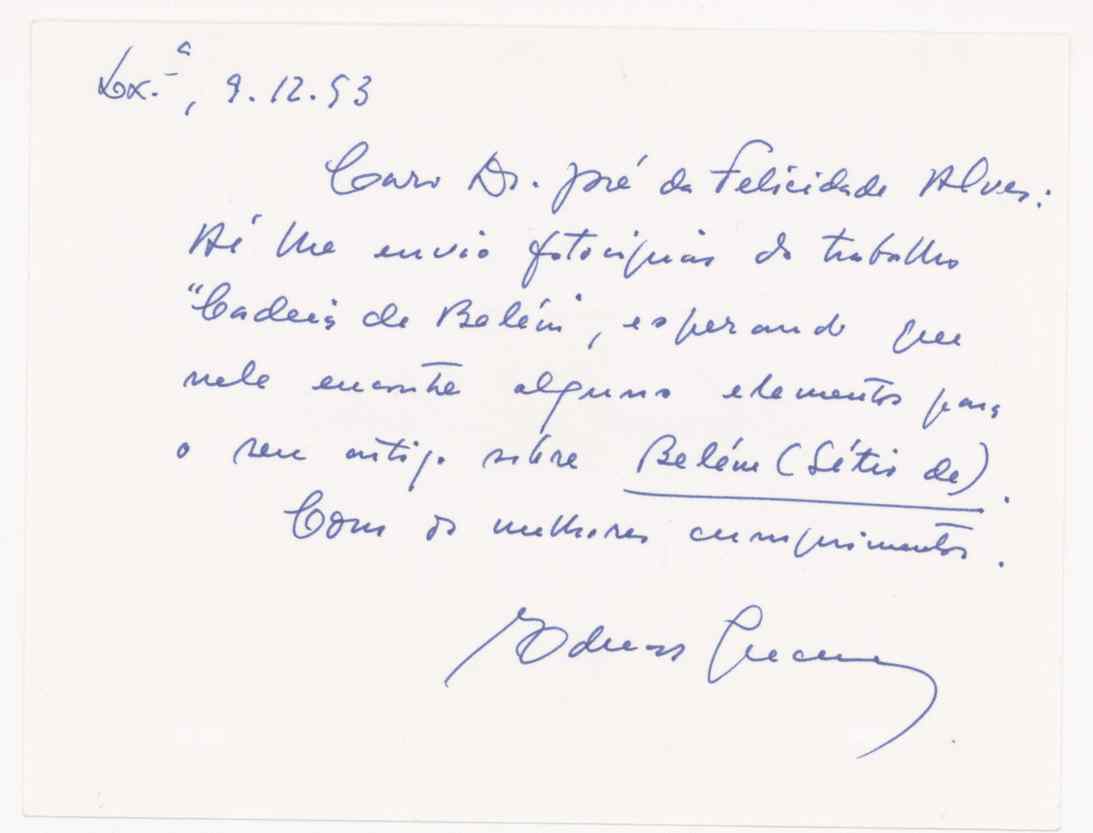 Lx.ª, 9.12.93
Caro Dr. José da Felicidade Alves:
Aí lhe envio fotocópias do trabalho
"Cadeia de Belém", esperando que
nele encontre alguns elementos para
o seu artigo sôbre Belém (Sítio de).
Com os melhores cumprimentos.